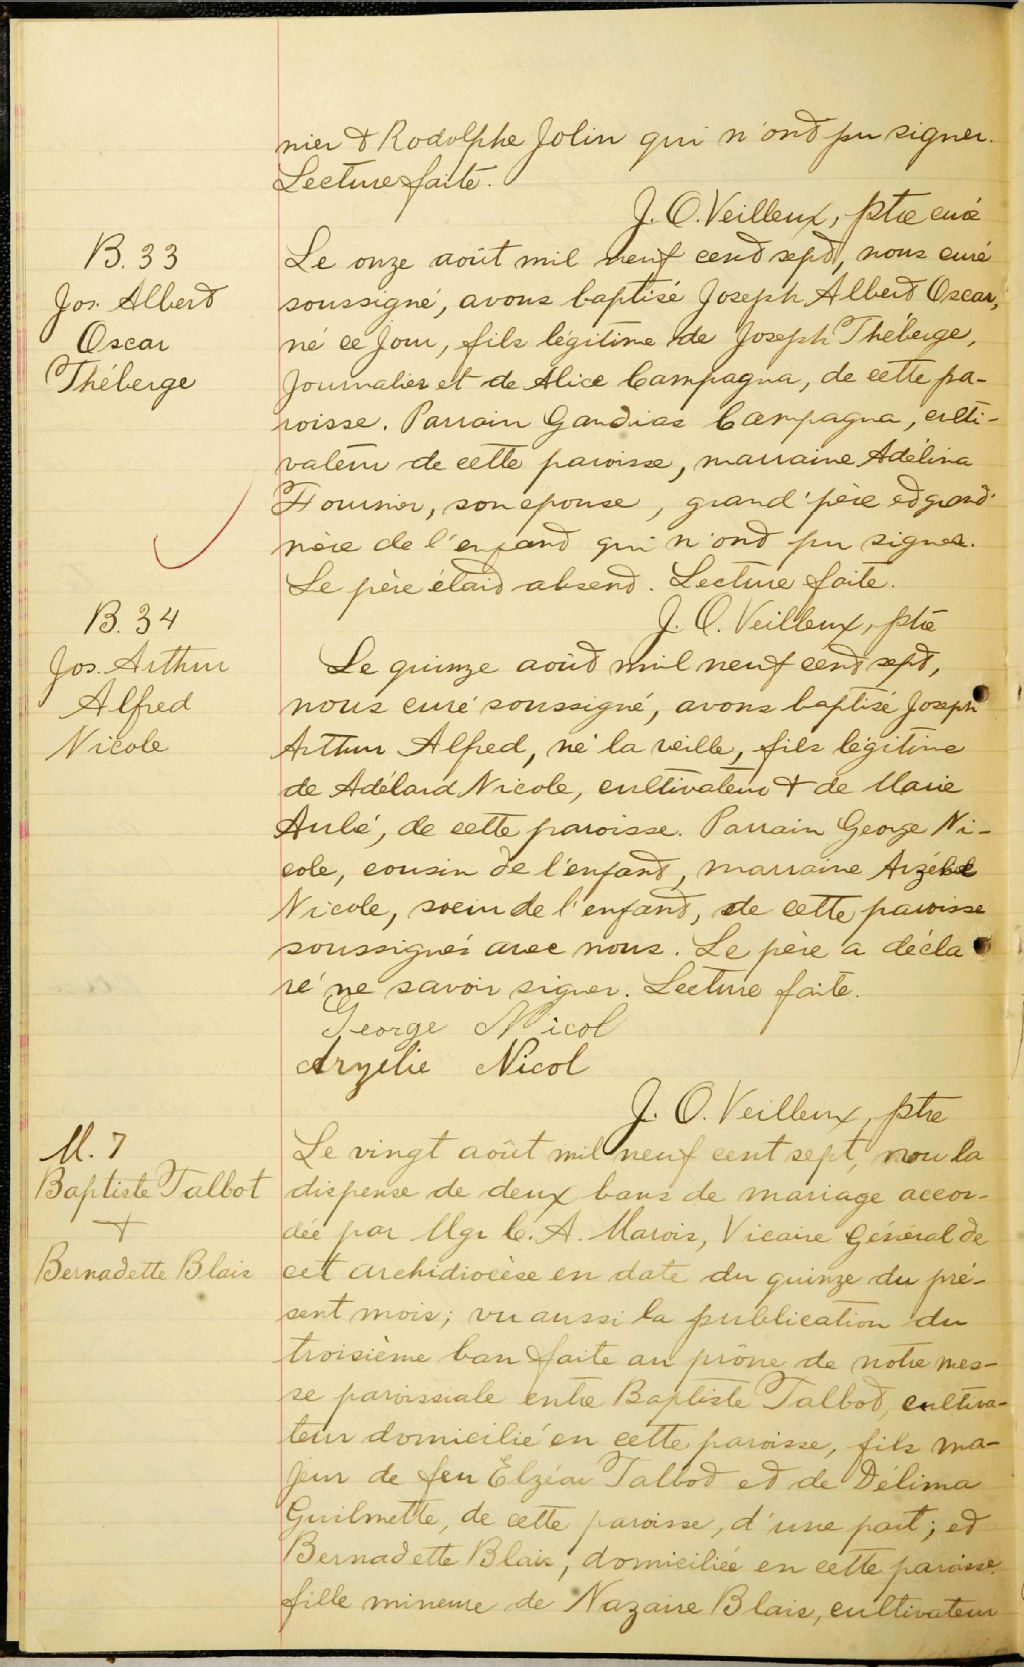 nier & Rodolphe Jolin qui n'ont pu signer.
Lecture faite.
J. O. Veilleux, ptre curé
B. 33
Jos. Albert
Oscar
Théberge
Le onze août mil neuf cent sept, nous curé
soussigné, avons baptisé Joseph Albert Oscar,
né ce jour, fils légitime de Joseph Théberge,
journalier et de Alice Campagna, de cette pa-
roisse. Parrain Gaudias Campagna, culti-
vateur de cette paroisse, marraine Adélina
Fournier, son epouse, grand'père et grand'
mère de l'enfant qui n'ont pu signer.
Le père était absent. Lecture faite.
J. O. Veilleux, ptre
B. 34
Jos. Arthur
Alfred
Nicole
Le quinze août mil neuf cent sept,
nous curé soussigné, avons baptisé Joseph
Arthur Alfred, né la veille, fils légitime
de Adélard Nicole, cultivateur & de Marie
Aubé, de cette paroisse. Parrain George Ni-
cole, cousin de l'enfant, marraine
Nicole, soeur de l'enfant, de cette paroisse
soussignés avec nous. Le père a décla
ré ne savoir signer. Lecture faite.
George Nicol
Arzelie Nicol
J. O. Veilleux, ptre
M. 7
Baptiste Talbot
+
Bernadette Blais
Le vingt août mil neuf cent sept, vu la
dispense de deux bans de mariage accor-
dée par Mgr C. A. Marois, Vicaire Général de
cet archidiocèse en date du quinze du pré-
sent mois; vu aussi la publication du
troisième ban faite au prône de notre mes-
se paroissiale entre Baptiste Talbot, cultiva-
teur domicilié en cette paroisse, fils ma-
jeur de feu Elzéar Talbot et de Délima
Guilmette, de cette paroisse, d'une part; et
Bernadette Blais, domiciliée en cette paroisse
fille mineure de Nazaire Blais, cultivateur